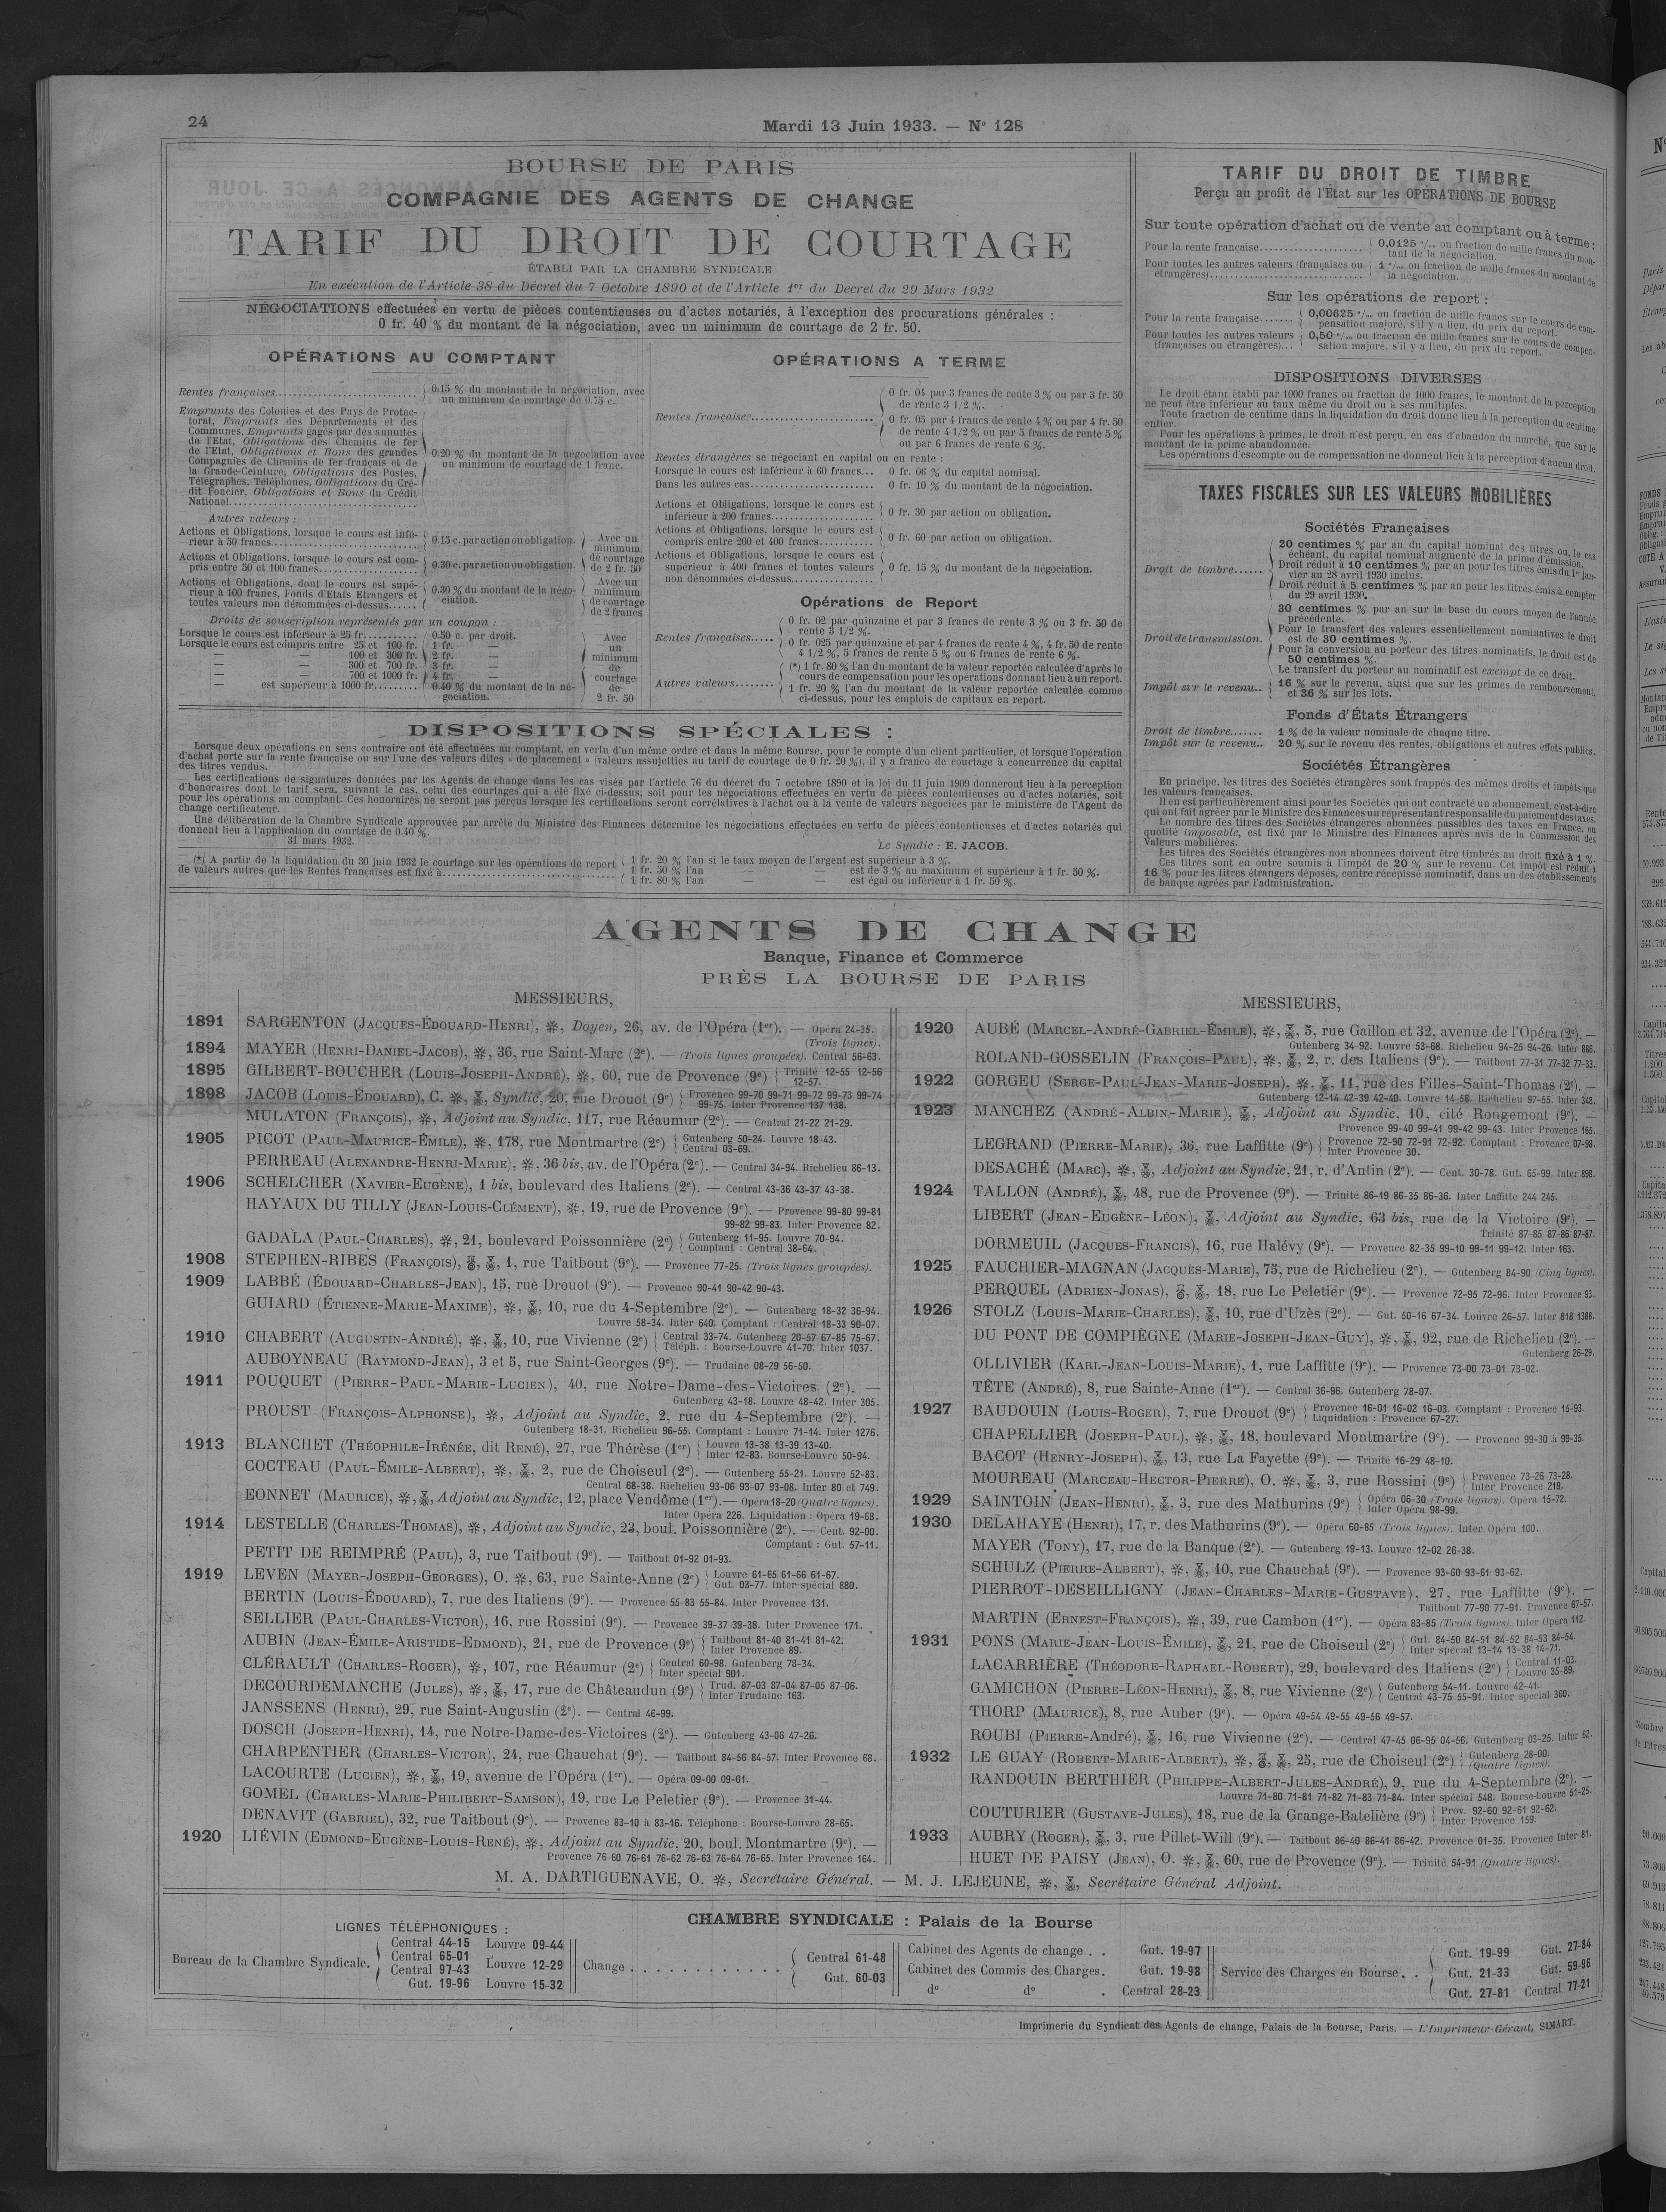 24
Mardi 13 Juin 1933. — N° 128
BOURSE DE PARIS
COMPAGNIE DES AGENTS DE CHANGE
TARIF DU DROIT DE COURTAGE
ÉTABLI PAR LA CHAMBRE SYNDICALE
En exécution de l'Article 38 du Décret du 7 Octobre 1890 et de l'Article 1er du Decret du 29 Mars 1932
NÉGOCIATIONS effectuées en vertu de pièces contentieuses ou d'actes notariés, à l'exception des procurations générales :
0 fr. 40 % du montant de la négociation, avec un minimum de courtage de 2 fr. 50.
OPÉRATIONS AU COMPTANT
Rentes françaises
0.15 % du montant de la négociation, avec
un minimum de courtage de 0.75 c.
Emprunts des Colonies et des Pays de Protec-
torat, Emprunts des Départements et des
Communes, Emprunts gagés par des annuités
de l'Etat, Obligations des Chemins de fer
de l'Etat, Obligations et Bons des grandes
Compagnies de Chemins de fer français et de
la Grande-Ceinture, Obligations des Postes,
Télégraphes, Téléphones, Obligations du Cré-
dit Foncier, Obligations et Bons du Crédit
National
0.20 % du montant de la négociation avec
un minimum de courtage de 1 franc.
Autres valeurs :
Actions et Obligations, lorsque le cours est infé-
rieur à 50 francs
0.15 c. par action ou obligation.
Actions et Obligations, lorsque le cours est com-
pris entre 50 et 100 francs
0.30 c. par action ou obligation.
Avec un
minimum
de courtage
de 2 fr. 50
Actions et Obligations, dont le cours est supé-
rieur à 100 francs, Fonds d'Etats Etrangers et
toutes valeurs non dénommées ci-dessus
0.30 % du montant de la négo-
ciation.
Avec un
minimum
de courtage
de 2 francs
Droits de souscription représentés par un coupon :
Lorsque le cours est inférieur à 25 fr. 0.50 c. par droit.
Lorsque le cours est compris entre 25 et 100 fr. 1 fr. —
— — 100 et 300 fr. 2 fr. —
— — 300 et 700 fr. 3 fr. —
— — 700 et 1000 fr. 4 fr. —
— est supérieur à 1000 fr. 0.40 % du montant de la né-
gociation.
Avec
un
minimum
de
courtage
de
2 fr. 50
OPÉRATIONS A TERME
Rentes françaises
0 fr. 04 par 3 francs de rente 3 % ou par 3 fr. 50
de rente 3 1/2 %.
0 fr. 05 par 4 francs de rente 4 % ou par 4 fr. 50
de rente 4 1/2 % ou par 5 francs de rente 5 %
ou par 6 francs de rente 6 %.
Rentes étrangères se négociant en capital ou en rente :
Lorsque le cours est inférieur à 60 francs... 0 fr. 06 % du capital nominal.
Dans les autres cas 0 fr. 10 % du montant de la négociation.
Actions et Obligations, lorsque le cours est
inférieur à 200 francs
0 fr. 30 par action ou obligation.
Actions et Obligations, lorsque le cours est
compris entre 200 et 400 francs
0 fr. 60 par action ou obligation.
Actions et Obligations, lorsque le cours est
supérieur à 400 francs et toutes valeurs
non dénommées ci-dessus
0 fr. 15 % du montant de la négociation.
Opérations de Report
Rentes françaises
0 fr. 02 par quinzaine et par 3 francs de rente 3 % ou 3 fr. 50 de
rente 3 1/2 %.
0 fr. 025 par quinzaine et par 4 francs de rente 4 %, 4 fr. 50 de rente
4 1/2 %, 5 francs de rente 5 % ou 6 francs de rente 6 %.
Autres valeurs
(*) 1 fr. 80 % l'an du montant de la valeur reportée calculée d'après le
cours de compensation pour les opérations donnant lieu à un report.
1 fr. 20 % l'an du montant de la valeur reportée calculée comme
ci-dessus, pour les emplois de capitaux en report.
DISPOSITIONS SPÉCIALES :
Lorsque deux opérations en sens contraire ont été effectuées au comptant, en vertu d'un même ordre et dans la même Bourse, pour le compte d'un client particulier, et lorsque l'opération
d'achat porte sur la rente française ou sur l'une des valeurs dites « de placement » (valeurs assujetties au tarif de courtage de 0 fr. 20 %), il y a franco de courtage à concurrence du capital
des titres vendus.
Les certifications de signatures données par les Agents de change dans les cas visés par l'article 76 du décret du 7 octobre 1890 et la loi du 11 juin 1909 donneront lieu à la perception
d'honoraires dont le tarif sera, suivant le cas, celui des courtages qui a été fixé ci-dessus, soit pour les négociations effectuées en vertu de pièces contentieuses ou d'actes notariés, soit
pour les opérations au comptant. Ces honoraires ne seront pas perçus lorsque les certifications seront corrélatives à l'achat ou à la vente de valeurs négociées par le ministère de l'Agent de
change certificateur.
Une délibération de la Chambre Syndicale approuvée par arrêté du Ministre des Finances détermine les négociations effectuées en vertu de pièces contentieuses et d'actes notariés qui
donnent lieu à l'application du courtage de 0.40 %.
31 mars 1932.
Le Syndic : E. JACOB.
(*) A partir de la liquidation du 30 juin 1932 le courtage sur les opérations de report
de valeurs autres que les Rentes françaises est fixé à
1 fr. 20 % l'an si le taux moyen de l'argent est supérieur à 3 %.
1 fr. 50 % l'an — — est de 3 % au maximum et supérieur à 1 fr. 50 %.
1 fr. 80 % l'an — — est égal ou inférieur à 1 fr. 50 %.
TARIF DU DROIT DE TIMBRE
Perçu au profit de l'État sur les OPÉRATIONS DE BOURSE
Sur toute opération d'achat ou de vente au comptant ou à terme :
Pour la rente française
0,0125 °/oo ou fraction de mille francs du mon-
tant de la négociation.
Pour toutes les autres valeurs (françaises ou
étrangères)
1 °/oo ou fraction de mille francs du montant de
la négociation.
Sur les opérations de report :
Pour la rente française
0,00625 °/oo ou fraction de mille francs sur le cours de com-
pensation majoré, s'il y a lieu, du prix du report.
Pour toutes les autres valeurs
(françaises ou étrangères)...
0,50 °/oo ou fraction de mille francs sur le cours de compen-
sation majoré, s'il y a lieu, du prix du report.
DISPOSITIONS DIVERSES
Le droit étant établi par 1000 francs ou fraction de 1000 francs, le montant de la perception
ne peut être inférieur au taux même du droit ou à ses multiples.
Toute fraction de centime dans la liquidation du droit donne lieu à la perception du centime
entier.
Pour les opérations à primes, le droit n'est perçu, en cas d'abandon du marché, que sur le
montant de la prime abandonnée.
Les opérations d'escompte ou de compensation ne donnent lieu à la perception d'aucun droit.
TAXES FISCALES SUR LES VALEURS MOBILIÈRES
Sociétés Françaises
Droit de timbre
20 centimes % par an du capital nominal des titres ou, le cas
échéant, du capital nominal augmenté de la prime d'émission.
Droit réduit à 10 centimes % par an pour les titres émis du 1er jan-
vier au 28 avril 1930 inclus.
Droit réduit à 5 centimes % par an pour les titres émis à compter
du 29 avril 1930.
Droit de transmission.
30 centimes % par an sur la base du cours moyen de l'année
précédente.
Pour le transfert des valeurs essentiellement nominatives le droit
est de 30 centimes %.
Pour la conversion au porteur des titres nominatifs, le droit est de
50 centimes %.
Le transfert du porteur au nominatif est exempt de ce droit.
Impôt sur le revenu..
16 % sur le revenu, ainsi que sur les primes de remboursement,
et 36 % sur les lots.
Fonds d'États Étrangers
Droit de timbre...... 1 % de la valeur nominale de chaque titre.
Impôt sur le revenu.. 20 % sur le revenu des rentes, obligations et autres effets publics.
Sociétés Étrangères
En principe, les titres des Sociétés étrangères sont frappés des mêmes droits et impôts que
les valeurs françaises.
Il en est particulièrement ainsi pour les Sociétés qui ont contracté un abonnement, c'est-à-dire
qui ont fait agréer par le Ministre des Finances un représentant responsable du paiement des taxes.
Le nombre des titres des Sociétés étrangères abonnées passibles des taxes en France, ou
quotité imposable, est fixé par le Ministre des Finances après avis de la Commission des
Valeurs mobilières.
Les titres des Sociétés étrangères non abonnées doivent être timbrés au droit fixé à 1 %.
Ces titres sont en outre soumis à l'impôt de 20 % sur le revenu. Cet impôt est réduit à
16 % pour les titres étrangers déposés, contre récépissé nominatif, dans un des établissements
de banque agréés par l'administration.
AGENTS DE CHANGE
Banque, Finance et Commerce
PRÈS LA BOURSE DE PARIS
MESSIEURS,
1891 SARGENTON (Jacques-Édouard-Henri), ※, Doyen, 26, av. de l'Opéra (1er). — Opéra 24-35.
(Trois lignes).
1894 MAYER (Henri-Daniel-Jacob), ※, 36, rue Saint-Marc (2e). — (Trois lignes groupées). Central 56-63.
1895 GILBERT-BOUCHER (Louis-Joseph-André), ※, 60, rue de Provence (9e) Trinité 12-55 12-56
12-57.
1898 JACOB (Louis-Édouard), C. ※, Syndic, 20, rue Drouot (9e) Provence 99-70 99-71 99-72 99-73 99-74
99-75. Inter Provence 137 138.
MULATON (François), ※, Adjoint au Syndic, 117, rue Réaumur (2e). — Central 21-22 21-29.
1905 PICOT (Paul-Maurice-Émile), ※, 178, rue Montmartre (2e) Gutenberg 50-24. Louvre 18-43.
Central 03-69.
PERREAU (Alexandre-Henri-Marie), ※, 36 bis, av. de l'Opéra (2e). — Central 34-94. Richelieu 86-13.
1906 SCHELCHER (Xavier-Eugène), 1 bis, boulevard des Italiens (2e). — Central 43-36 43-37 43-38.
HAYAUX DU TILLY (Jean-Louis-Clément), ※, 19, rue de Provence (9e). — Provence 99-80 99-81
99-82 99-83. Inter Provence 82.
GADALA (Paul-Charles), ※, 21, boulevard Poissonnière (2e) Gutenberg 11-95. Louvre 70-94.
Comptant : Central 38-64.
1908 STEPHEN-RIBES (François), 1, rue Taitbout (9e). — Provence 77-25. (Trois lignes groupées).
1909 LABBÉ (Édouard-Charles-Jean), 15, rue Drouot (9e). — Provence 90-41 90-42 90-43.
GUIARD (Étienne-Marie-Maxime), ※, 10, rue du 4-Septembre (2e). — Gutenberg 18-32 36-94.
Louvre 58-34. Inter 640. Comptant : Central 18-33 90-07.
1910 CHABERT (Augustin-André), ※, 10, rue Vivienne (2e) Central 33-74. Gutenberg 20-57 67-85 75-67.
Téléph. : Bourse-Louvre 41-70. Inter 1037.
AUBOYNEAU (Raymond-Jean), 3 et 5, rue Saint-Georges (9e). — Trudaine 08-29 56-50.
1911 POUQUET (Pierre-Paul-Marie-Lucien), 40, rue Notre-Dame-des-Victoires (2e). —
Gutenberg 43-18. Louvre 48-42. Inter 305.
PROUST (François-Alphonse), ※, Adjoint au Syndic, 2, rue du 4-Septembre (2e). —
Gutenberg 18-31. Richelieu 96-55. Comptant : Louvre 71-14. Inter 1276.
1913 BLANCHET (Théophile-Irénée, dit René), 27, rue Thérèse (1er) Louvre 13-38 13-39 13-40.
Inter 12-83. Bourse-Louvre 50-94.
COCTEAU (Paul-Émile-Albert), ※, 2, rue de Choiseul (2e). — Gutenberg 55-21. Louvre 52-83.
Central 68-38. Richelieu 93-06 93-07 93-08. Inter 80 et 749.
EONNET (Maurice), ※, Adjoint au Syndic, 12, place Vendôme (1er). — Opéra 18-20 (Quatre lignes).
Inter Opéra 226. Liquidation : Opéra 19-68.
1914 LESTELLE (Charles-Thomas), ※, Adjoint au Syndic, 23, boul. Poissonnière (2e). — Cent. 92-00.
Comptant : Gut. 57-11.
PETIT DE REIMPRÉ (Paul), 3, rue Taitbout (9e). — Taitbout 01-92 01-93.
1919 LEVEN (Mayer-Joseph-Georges), O. ※, 63, rue Sainte-Anne (2e) Louvre 61-65 61-66 61-67.
Gut. 03-77. Inter spécial 880.
BERTIN (Louis-Édouard), 7, rue des Italiens (9e). — Provence 55-83 55-84. Inter Provence 131.
SELLIER (Paul-Charles-Victor), 16, rue Rossini (9e). — Provence 39-37 39-38. Inter Provence 171.
AUBIN (Jean-Émile-Aristide-Edmond), 21, rue de Provence (9e) Taitbout 81-40 81-41 81-42.
Inter Provence 89.
CLÉRAULT (Charles-Roger), ※, 107, rue Réaumur (2e) Central 60-98. Gutenberg 78-34.
Inter spécial 901.
DECOURDEMANCHE (Jules), ※, 17, rue de Châteaudun (9e) Trud. 87-03 87-04 87-05 87-06.
Inter Trudaine 163.
JANSSENS (Henri), 29, rue Saint-Augustin (2e). — Central 46-99.
DOSCH (Joseph-Henri), 14, rue Notre-Dame-des-Victoires (2e). — Gutenberg 43-06 47-26.
CHARPENTIER (Charles-Victor), 24, rue Chauchat (9e). — Taitbout 84-56 84-57. Inter Provence 68.
LACOURTE (Lucien), ※, 19, avenue de l'Opéra (1er). — Opéra 09-00 09-01.
GOMEL (Charles-Marie-Philibert-Samson), 19, rue Le Peletier (9e). — Provence 31-44.
DENAVIT (Gabriel), 32, rue Taitbout (9e). — Provence 83-10 à 83-16. Téléphone : Bourse-Louvre 28-65.
1920 LIÉVIN (Edmond-Eugène-Louis-René), ※, Adjoint au Syndic, 20, boul. Montmartre (9e). —
Provence 76-60 76-61 76-62 76-63 76-64 76-65. Inter Provence 164.
MESSIEURS,
1920 AUBÉ (Marcel-André-Gabriel-Émile), ※, 5, rue Gaillon et 32, avenue de l'Opéra (2e). —
Gutenberg 34-92. Louvre 53-68. Richelieu 94-25 94-26. Inter 866.
ROLAND-GOSSELIN (François-Paul), ※, 2, r. des Italiens (9e). — Taitbout 77-31 77-32 77-33.
1922 GORGEU (Serge-Paul-Jean-Marie-Joseph), ※, 11, rue des Filles-Saint-Thomas (2e). —
Gutenberg 12-14 42-39 42-40. Louvre 14-58. Richelieu 97-55. Inter 348.
1923 MANCHEZ (André-Albin-Marie), Adjoint au Syndic, 10, cité Rougemont (9e). —
Provence 99-40 99-41 99-42 99-43. Inter Provence 165.
LEGRAND (Pierre-Marie), 36, rue Laffitte (9e) Provence 72-90 72-91 72-92. Comptant : Provence 07-98.
Inter Provence 30.
DESACHÉ (Marc), ※, Adjoint au Syndic, 21, r. d'Antin (2e). — Cent. 30-78. Gut. 65-99. Inter 898.
1924 TALLON (André), 48, rue de Provence (9e). — Trinité 86-19 86-35 86-36. Inter Laffitte 244 245.
LIBERT (Jean-Eugène-Léon), Adjoint au Syndic, 63 bis, rue de la Victoire (9e). —
Trinité 87-85 87-86 87-87.
DORMEUIL (Jacques-Francis), 16, rue Halévy (9e). — Provence 82-35 99-10 99-11 99-12. Inter 163.
1925 FAUCHIER-MAGNAN (Jacques-Marie), 75, rue de Richelieu (2e). — Gutenberg 84-90 (Cinq lignes).
PERQUEL (Adrien-Jonas), 18, rue Le Peletier (9e). — Provence 72-95 72-96. Inter Provence 93.
1926 STOLZ (Louis-Marie-Charles), 10, rue d'Uzès (2e). — Gut. 50-16 67-34. Louvre 26-57. Inter 818 1388.
DU PONT DE COMPIÈGNE (Marie-Joseph-Jean-Guy), ※, 92, rue de Richelieu (2e). —
Gutenberg 26-29.
OLLIVIER (Karl-Jean-Louis-Marie), 1, rue Laffitte (9e). — Provence 73-00 73-01 73-02.
TÊTE (André), 8, rue Sainte-Anne (1er). — Central 36-96. Gutenberg 78-07.
1927 BAUDOUIN (Louis-Roger), 7, rue Drouot (9e) Provence 16-01 16-02 16-03. Comptant : Provence 15-93.
Liquidation : Provence 67-27.
CHAPELLIER (Joseph-Paul), ※, 18, boulevard Montmartre (9e). — Provence 99-30 à 99-35.
BACOT (Henry-Joseph), 13, rue La Fayette (9e). — Trinité 16-29 48-10.
MOUREAU (Marceau-Hector-Pierre), O. ※, 3, rue Rossini (9e) Provence 73-26 73-28.
Inter Provence 219.
1929 SAINTOIN (Jean-Henri), 3, rue des Mathurins (9e) Opéra 06-30 (Trois lignes). Opéra 15-72.
Inter Opéra 98-99.
1930 DELAHAYE (Henri), 17, r. des Mathurins (9e). — Opéra 60-85 (Trois lignes). Inter Opéra 100.
MAYER (Tony), 17, rue de la Banque (2e). — Gutenberg 19-13. Louvre 12-02 26-38.
SCHULZ (Pierre-Albert), ※, 10, rue Chauchat (9e). — Provence 93-60 93-61 93-62.
PIERROT-DESEILLIGNY (Jean-Charles-Marie-Gustave), 27, rue Laffitte (9e). —
Taitbout 77-90 77-91. Provence 67-57.
MARTIN (Ernest-François), ※, 39, rue Cambon (1er). — Opéra 83-85 (Trois lignes). Inter Opéra 112.
1931 PONS (Marie-Jean-Louis-Émile), 21, rue de Choiseul (2e) Gut. 84-50 84-51 84-52 84-53 84-54.
Inter spécial 13-14 13-38 14-71.
LACARRIÈRE (Théodore-Raphael-Robert), 29, boulevard des Italiens (2e) Central 11-03.
Louvre 35-89.
GAMICHON (Pierre-Léon-Henri), 8, rue Vivienne (2e) Gutenberg 54-11. Louvre 42-41.
Central 43-75 55-91. Inter spécial 360.
THORP (Maurice), 8, rue Auber (9e). — Opéra 49-54 49-55 49-56 49-57.
ROUBI (Pierre-André), 16, rue Vivienne (2e). — Central 47-45 06-95 04-56. Gutenberg 03-25. Inter 62.
1932 LE GUAY (Robert-Marie-Albert), ※, 25, rue de Choiseul (2e) Gutenberg 28-00.
(Quatre lignes).
RANDOUIN BERTHIER (Philippe-Albert-Jules-André), 9, rue du 4-Septembre (2e). —
Louvre 71-80 71-81 71-82 71-83 71-84. Inter spécial 548. Bourse-Louvre 51-25.
COUTURIER (Gustave-Jules), 18, rue de la Grange-Batelière (9e) Prov. 92-60 92-61 92-62.
Inter Provence 159.
1933 AUBRY (Roger), 3, rue Pillet-Will (9e). — Taitbout 86-40 86-41 86-42. Provence 01-35. Provence Inter 81.
HUET DE PAISY (Jean), O. ※, 60, rue de Provence (9e). — Trinité 54-91 (Quatre lignes).
M. A. DARTIGUENAVE, O. ※, Secrétaire Général. — M. J. LEJEUNE, ※, Secrétaire Général Adjoint.
CHAMBRE SYNDICALE : Palais de la Bourse
LIGNES TÉLÉPHONIQUES :
Bureau de la Chambre Syndicale.
Central 44-15 Louvre 09-44
Central 65-01 Louvre 12-29
Central 97-43
Gut. 19-96 Louvre 15-32
Change
Central 61-48
Gut. 60-03
Cabinet des Agents de change . . Gut. 19-97
Cabinet des Commis des Charges. Gut. 19-98
d° d° . Central 28-23
Service des Charges en Bourse. .
Gut. 19-99 Gut. 27-84
Gut. 21-33 Gut. 59-96
Gut. 27-81 Central 77-21
Imprimerie du Syndicat des Agents de change, Palais de la Bourse, Paris. — L'Imprimeur-Gérant, SIMART.